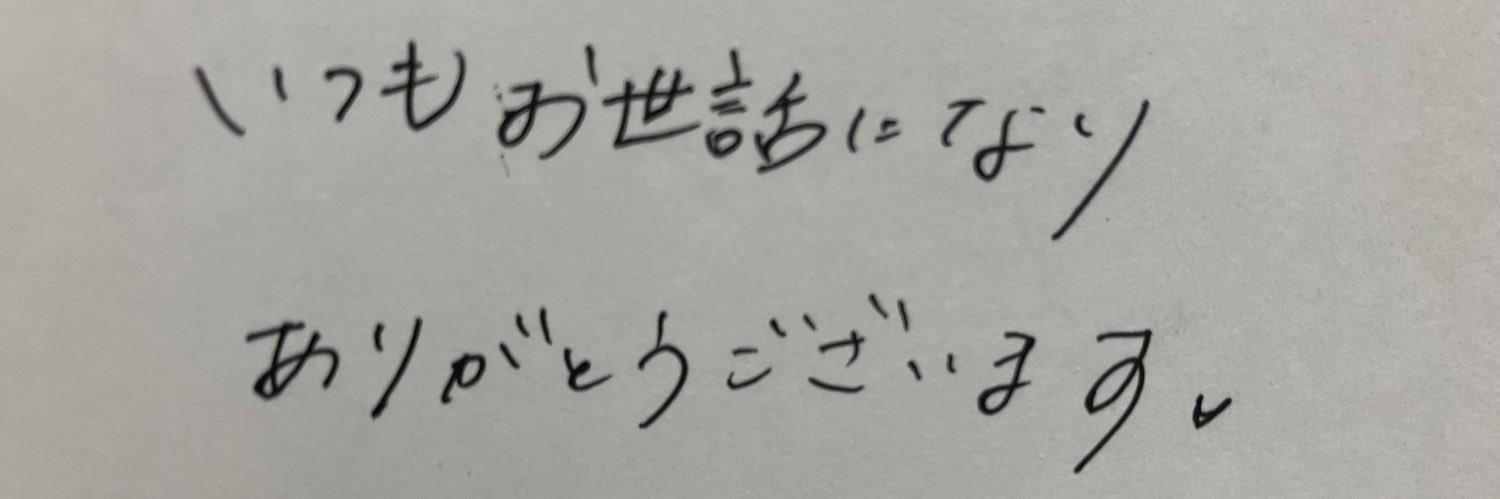 いつもお世話になり
ありがとうございます。